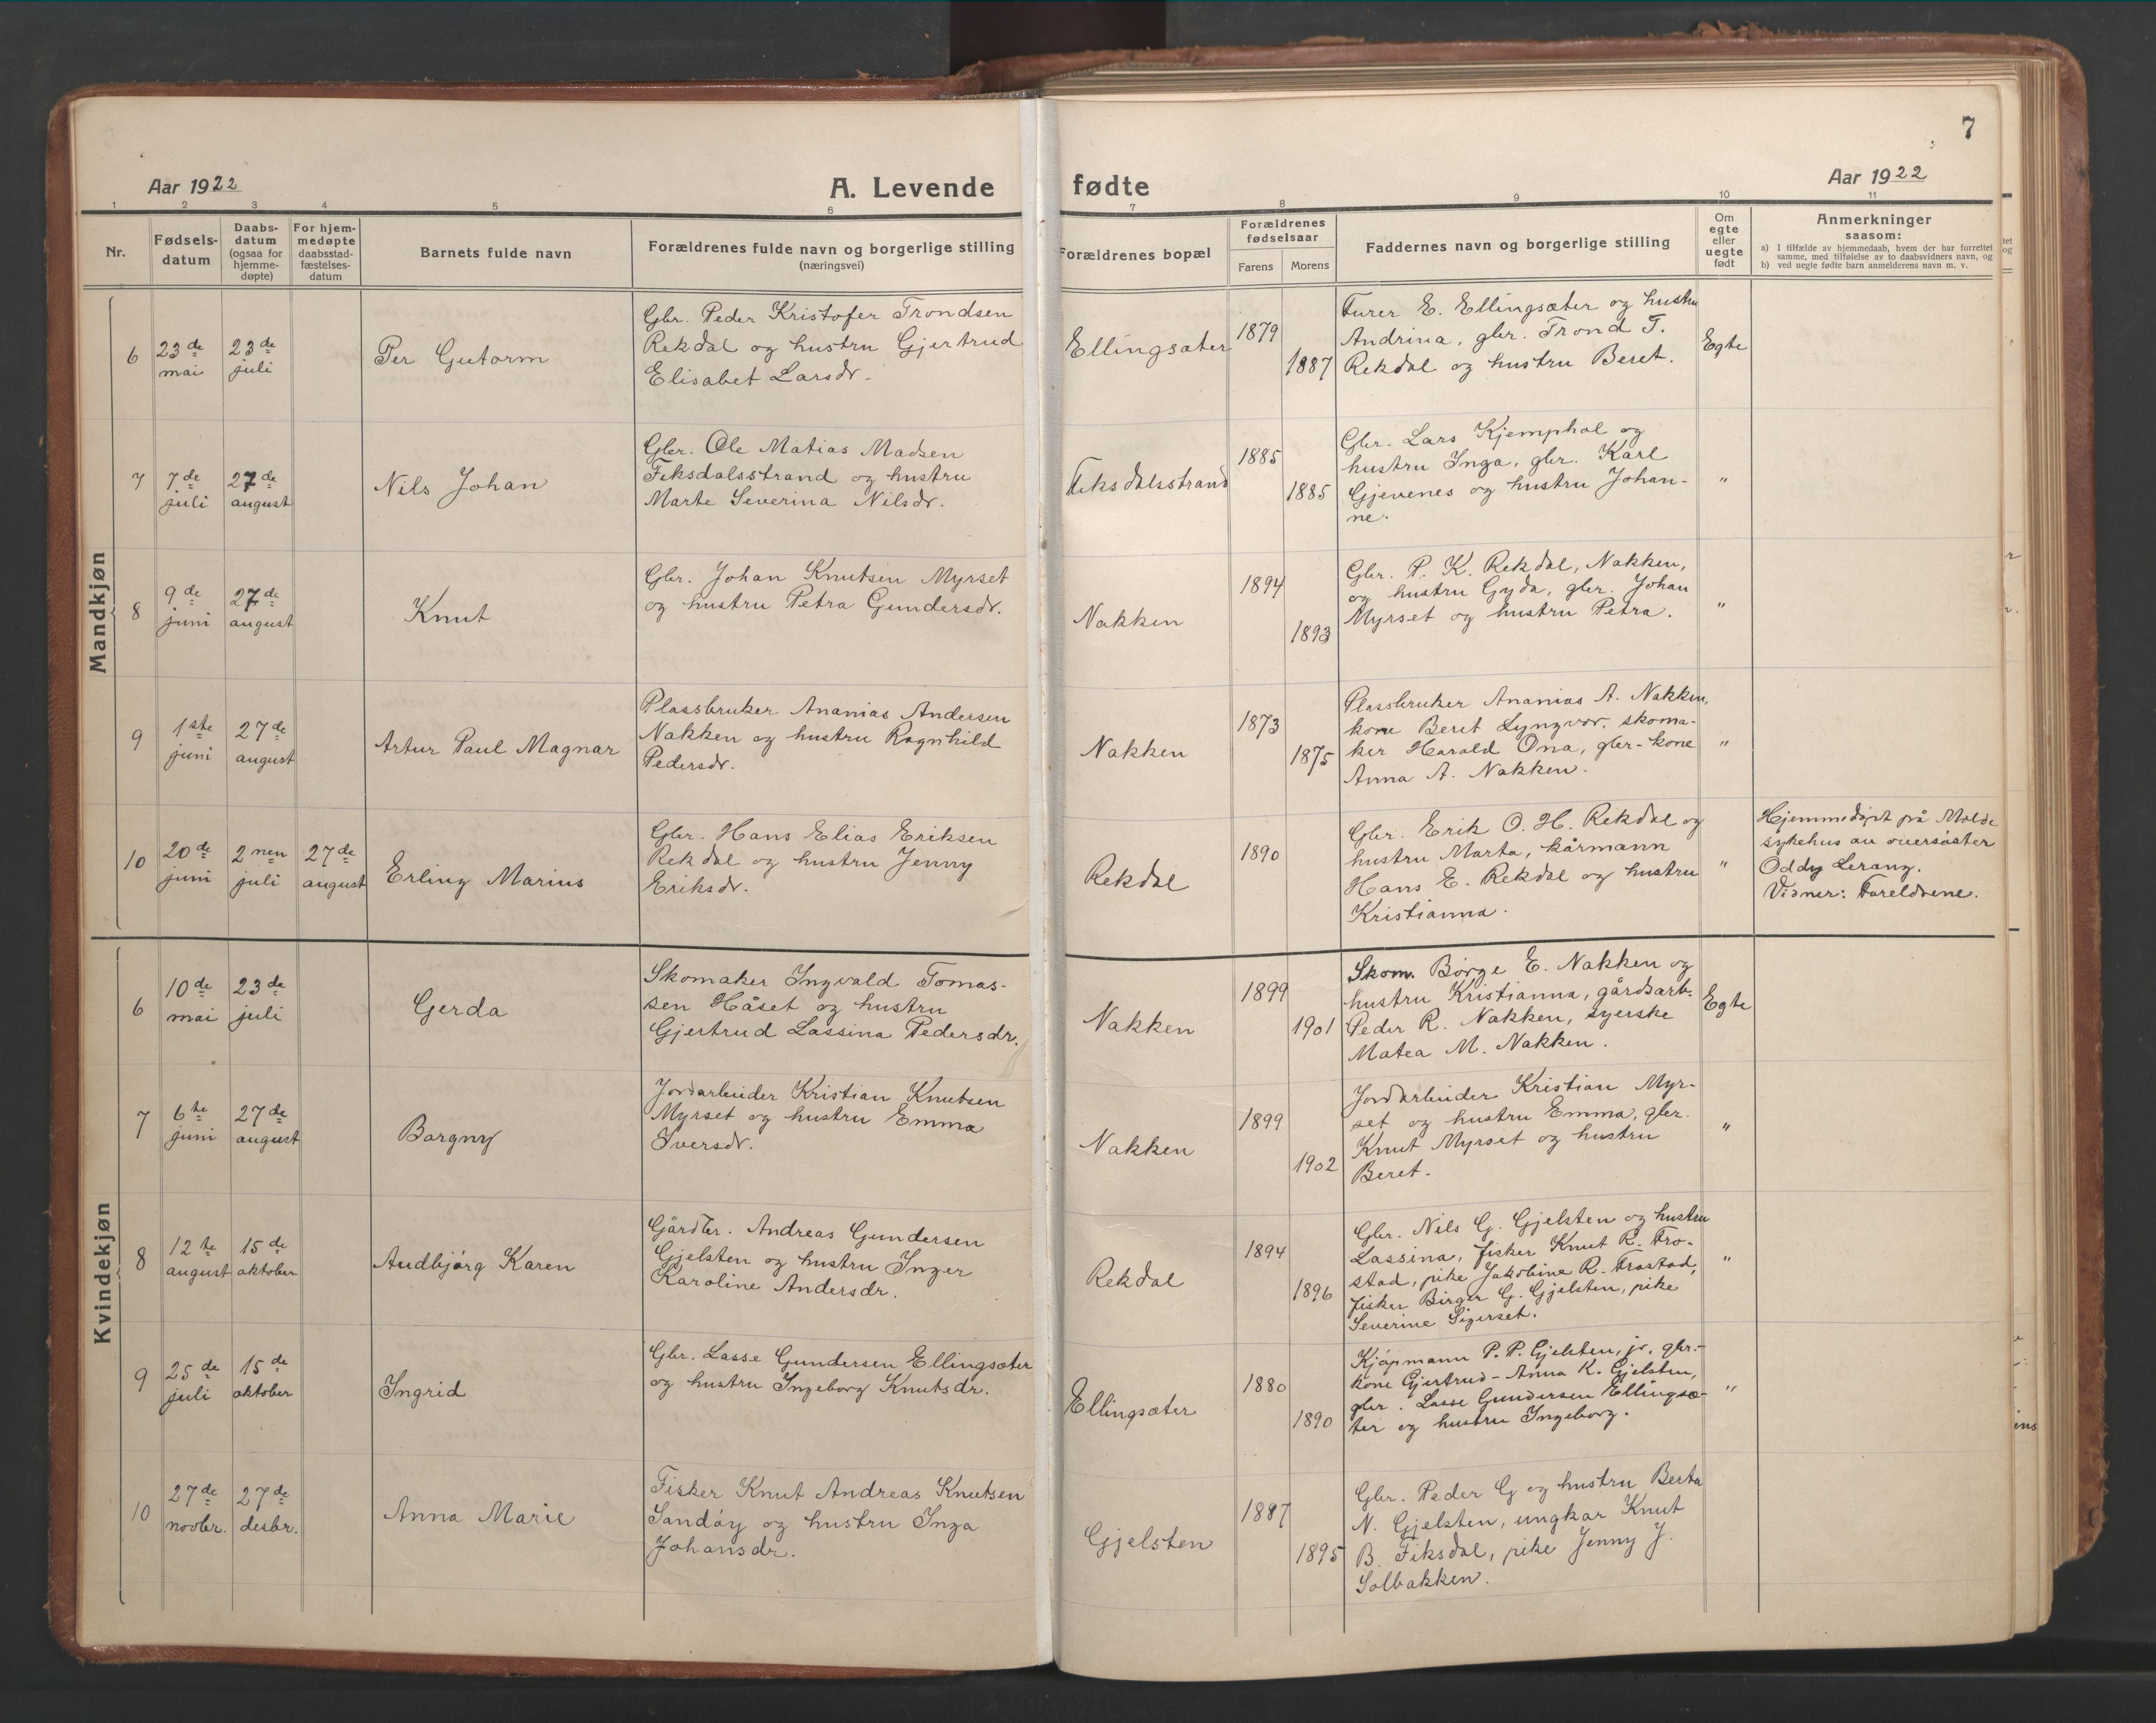 7
Aar 1922
A. Levende fødte
Aar 1922
1 2 3 4 5 6 7 8 9 10 11
Nr.
Fødsels-
datum
Daabs-
datum
(ogsaa for
hjemme-
døpte)
For hjem-
medøpte
daabsstad-
fæstelses-
datum
Barnets fulde navn
Forældrenes fulde navn og borgerlige stilling
(næringsvei)
Forældrenes bopæl
Forældrenes
fødselsaar
Farens Morens
Faddernes navn og borgerlige stilling
Om
egte
eller
uegte
født
Anmerkninger
saasom:
a) I tilfælde av hjemmedaab, hvem der har forrettet
samme, med tilføielse av to daabsvidners navn, og
b) ved uegte fødte barn anmelderens navn m. v.
Mandkjøn
6
23de
mai
23de
juli
Per Gutorm
Gbr. Peder Kristofer Trondsen
Rekdal og hustru Gjertrud
Elisabet Larsdr.
Ellingsæter
1879
1887
Furer E. Ellingsæter og hustru
Andrina, gbr. Trond T.
Rekdal og hustru Beret.
Egte
7
7de
juli
27de
august
Nils Johan
Gbr. Ole Matias Madsen
Fiksdalsstrand og hustru
Marte Severina Nilsdr.
Fiksdalsstrand
1885
1885
Gbr. Lars Kjemphol og
hustru Inga, gbr. Karl
Gjevenes og hustru Johan-
ne.
"
8
9de
juni
27de
august
Knut
Gbr. Johan Knutsen Myrset
og hustru Petra Gundersdr.
Nakken
1894
1893
Gbr. P. K. Rekdal, Nakken,
og hustru Gyda, gbr. Johan
Myrset og hustru Petra.
"
9
1ste
juni
27de
august
Artur Paul Magnar
Plassbruker Ananias Andersen
Nakken og hustru Ragnhild
Pedersdr.
Nakken
1873
1875
Plassbruker Ananias A. Nakken,
kone Beret Lyngvær, skoma-
ker Harald Ona, gbr-kone
Anna A. Nakken.
"
10
20de
juni
2nen
juli
27de
august
Erling Marius
Gbr. Hans Elias Eriksen
Rekdal og hustru Jenny
Eriksdr.
Rekdal
1890
Gbr. Erik O. H. Rekdal og
hustru Marta, kårmann
Hans E. Rekdal og hustru
Kristianna.
"
Hjemmedøpt på Molde
sykehus av oversøster
Oddy Lerang.
Vidner: Foreldrene.
Kvindekjøn
6
10de
mai
23de
juli
Gerda
Skomaker Ingvald Tomas-
sen Håset og hustru
Gjertrud Lassina Pedersdr.
Nakken
1899
1901
Skom. Børge E. Nakken og
hustru Kristianna, gårdsarb.
Peder R. Nakken, syerske
Matea M. Nakken.
Egte
7
6te
juni
27de
august
Borgny
Jordarbeider Kristian Knutsen
Myrset og hustru Emma
Iversdr.
Nakken
1899
1902
Jordarbeider Kristian Myr-
set og hustru Emma, gbr.
Knut Myrset og hustru
Beret.
"
8
12te
august
15de
oktober
Audbjørg Karen
Gårdbr. Andreas Gundersen
Gjelsten og hustru Inger
Karoline Andersdr.
Rekdal
1894
1896
Gbr. Nils G. Gjelsten og hustru
Lassina, fisker Knut R. Fro-
stad, pike Jakobine R. Frostad,
fisker Birger G. Gjelsten, pike
Severine Sigerset.
"
9
25de
juli
15de
oktober
Ingrid
Gbr. Lasse Gundersen Ellingsæter
og hustru Ingeborg Knutsdr.
Ellingsæter
1880
1890
Kjøpmann P. P. Gjelsten, jr, gbr.-
kone Gjertrud-Anna K. Gjelsten,
gbr. Lasse Gundersen Ellingsæ-
ter og hustru Ingeborg.
"
10
27de
novbr.
27de
desbr.
Anna Marie
Fisker Knut Andreas Knutsen
Sandøy og hustru Inga
Johansdr.
Gjelsten
1887
1895
Gbr. Peder G og hustru Berta
N. Gjelsten, ungkar Knut
B. Fiksdal, pike Jenny J.
Solbakken.